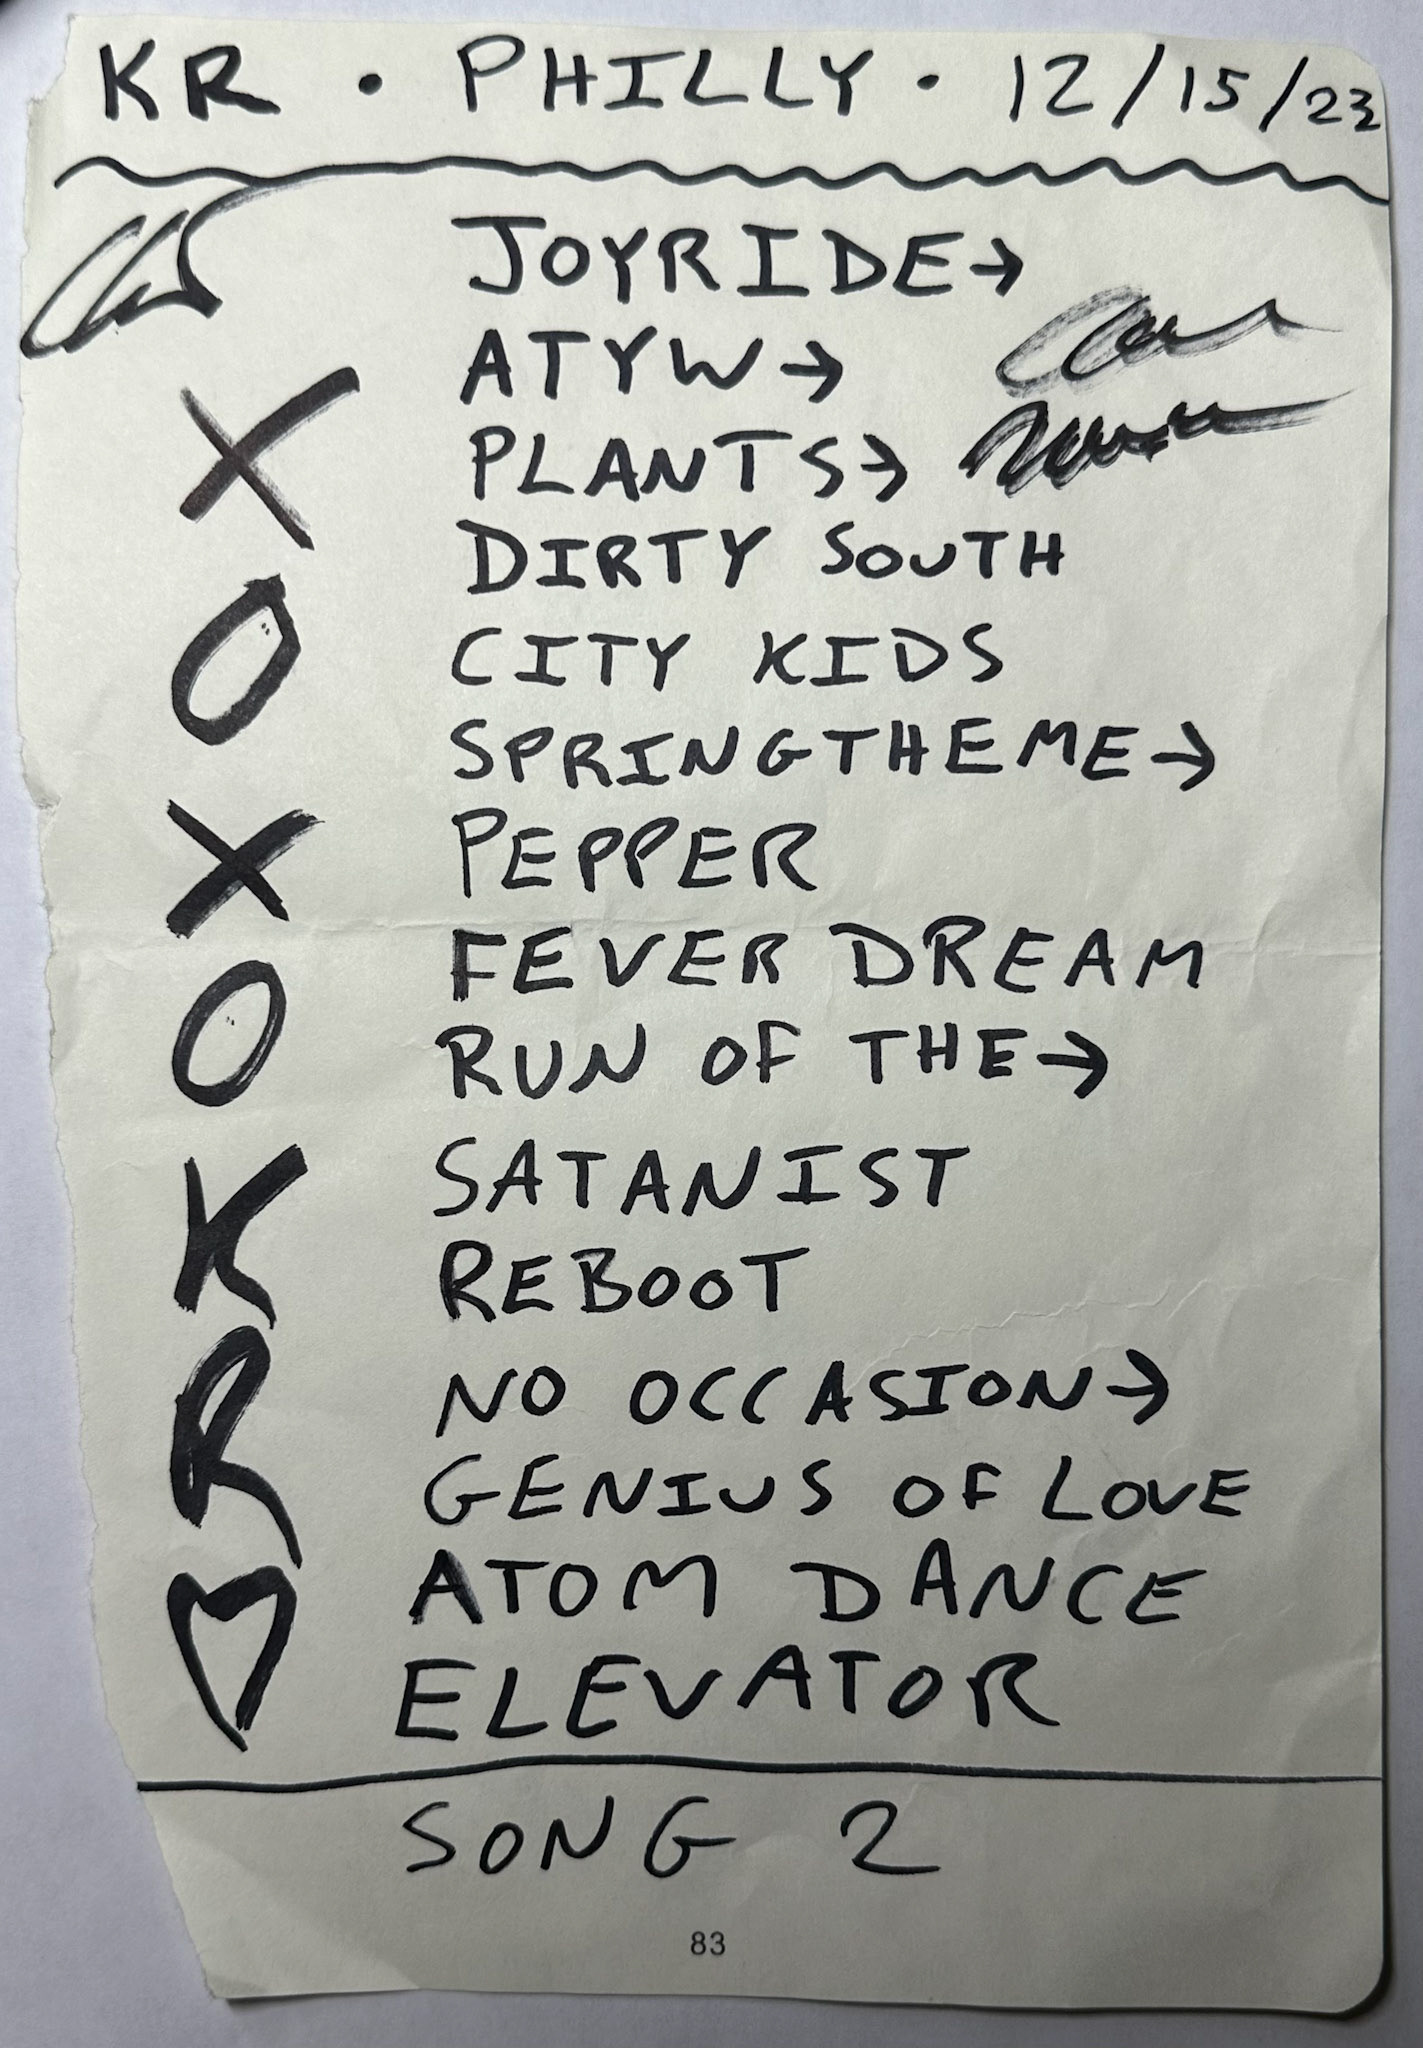 KR • PHILLY • 12/15/23
JOYRIDE→
ATYW→
PLANTS→
DIRTY SOUTH
CITY KIDS
SPRINGTHEME→
PEPPER
FEVER DREAM
RUN OF THE→
SATANIST
REBOOT
NO OCCASION→
GENIUS OF LOVE
ATOM DANCE
ELEVATOR
SONG 2
X
O
X
O
K
R
♡
83